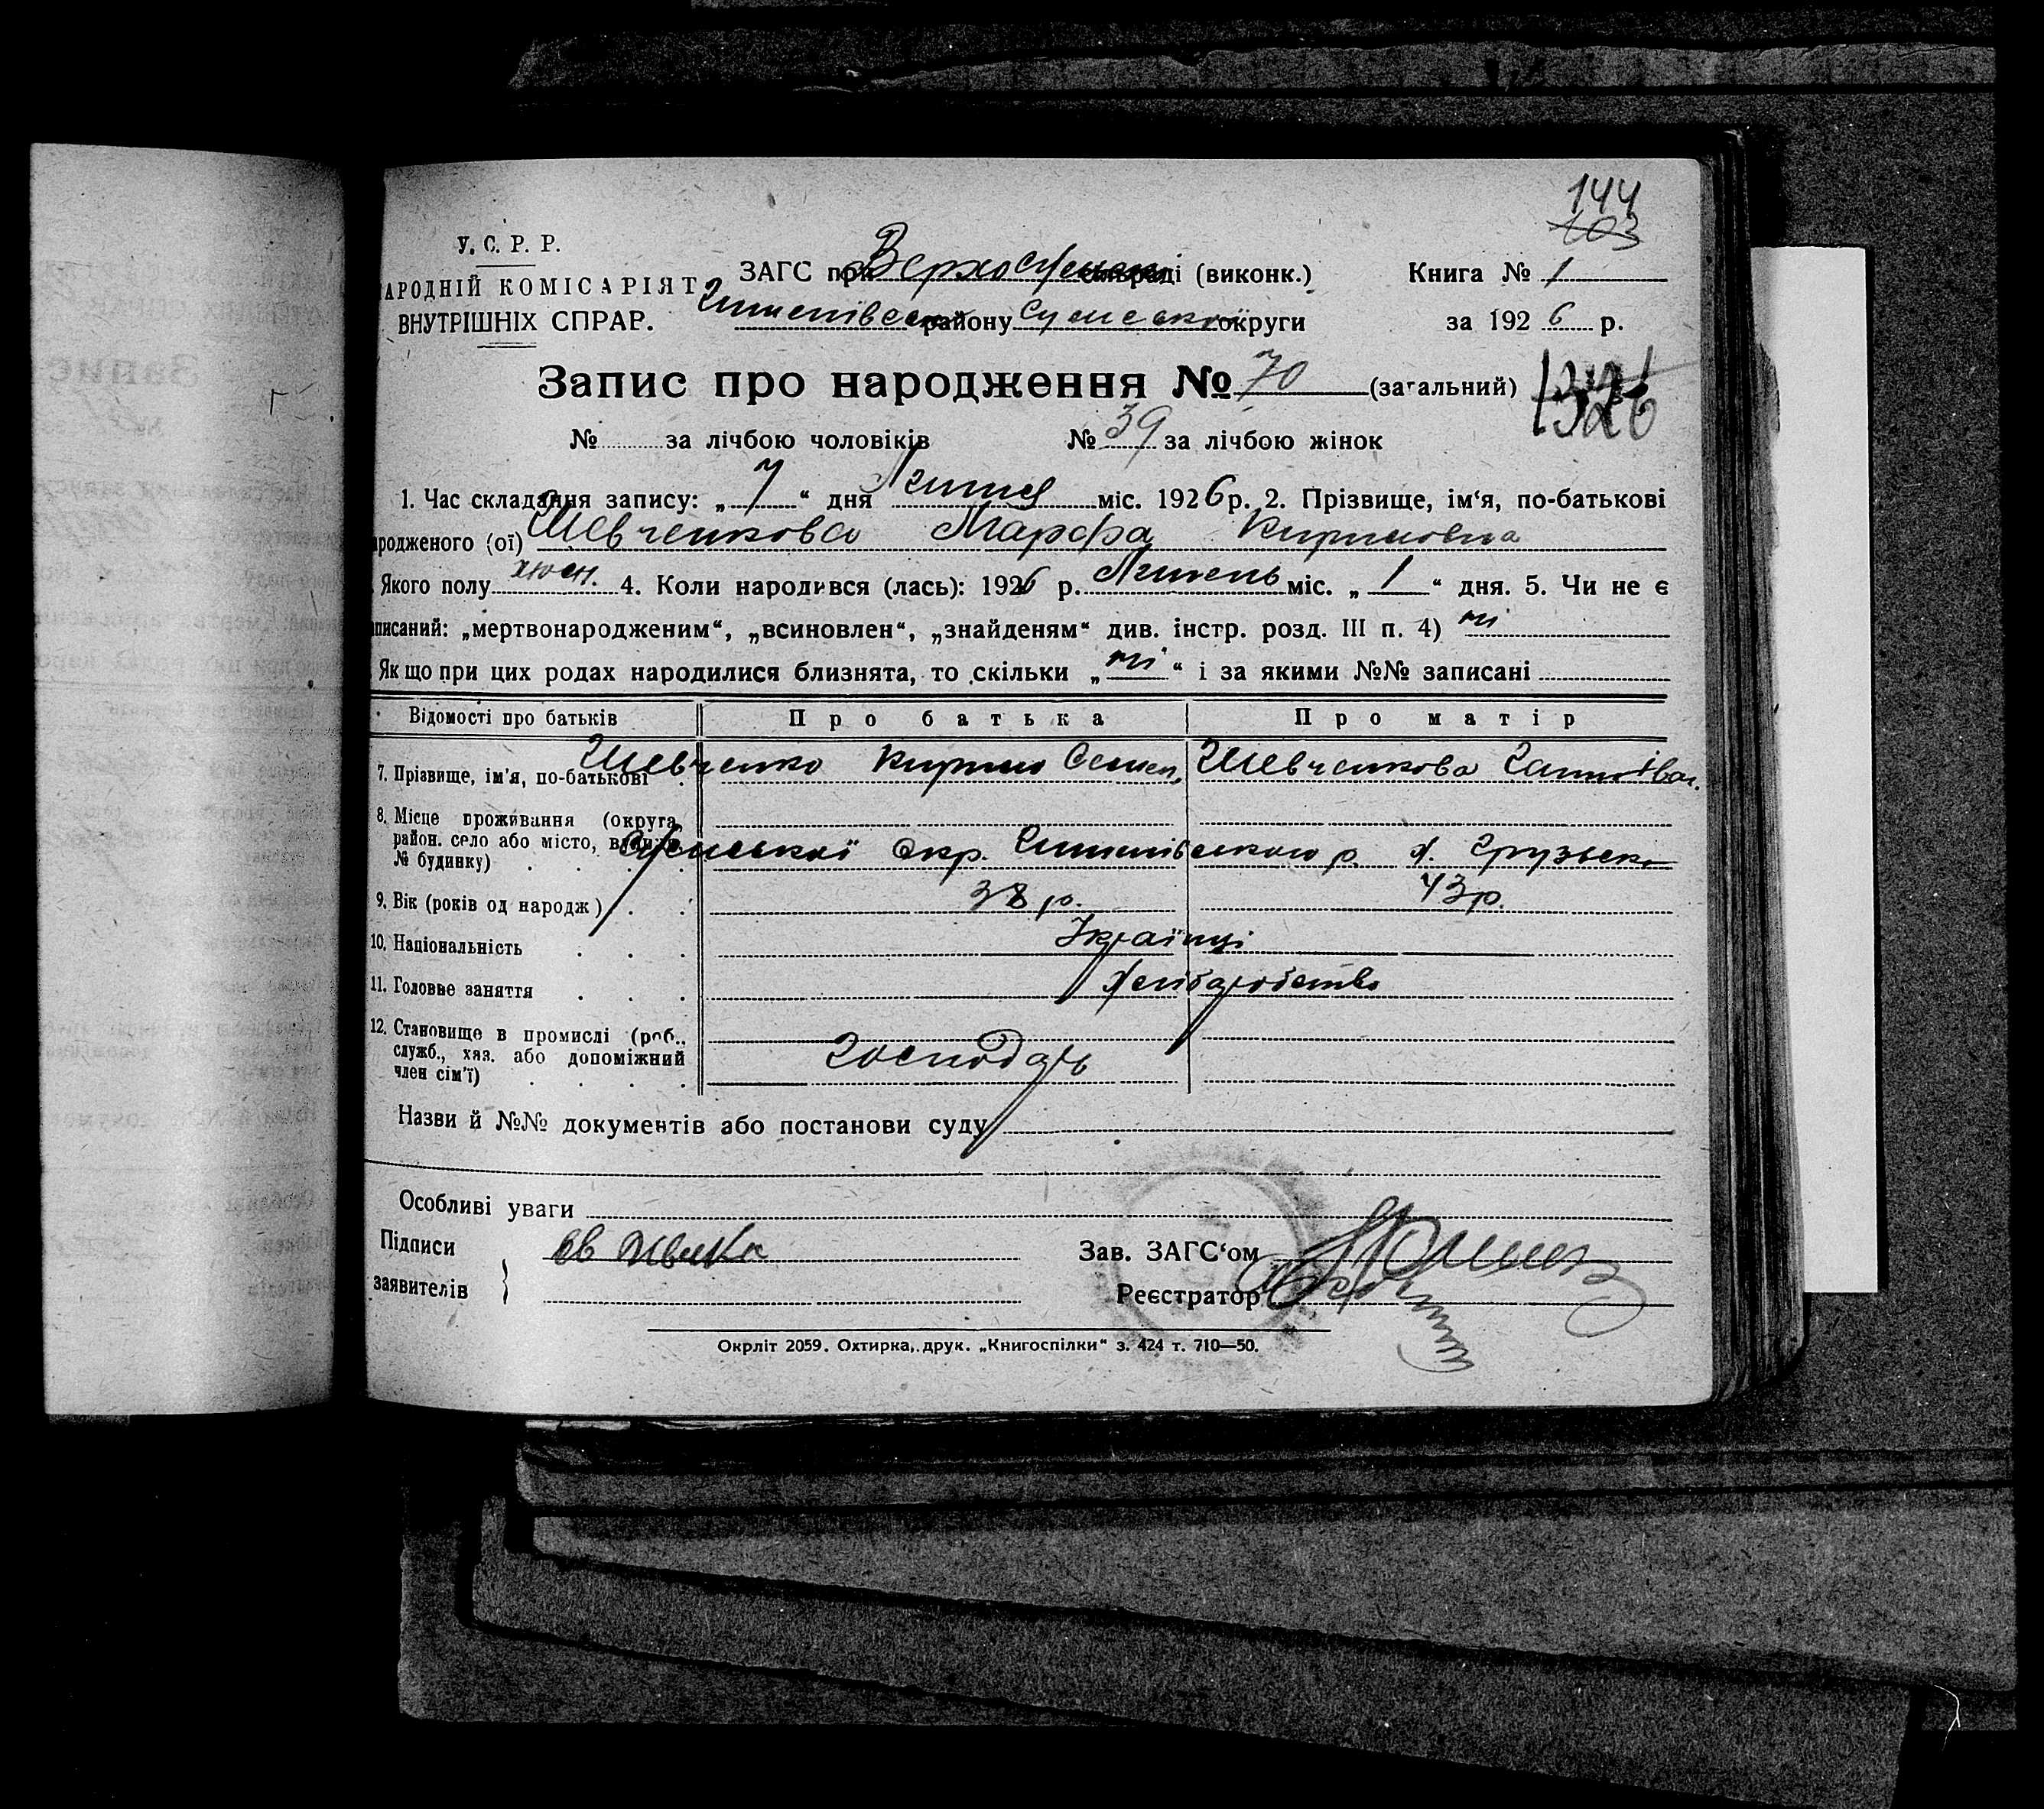 144
103
У. С. Р. Р.
АРОДНІЙ КОМІСАРІЯТ
ВНУТРІШНІХ СПРАР.
ЗАГС при сільраді (виконк.)
району Сумської округи
Книга № 1
за 1926 р.
Запис про народження № 70 (загальний)
№ за лічбою чоловіків № 39 за лічбою жінок
1. Час складання запису: „ 7 “ дня Липня міс. 1926 р. 2. Прізвище, ім‘я, по-батькові
родженого (ої) Шевченкова Марфа Кириловна
Якого полу жін. 4. Коли народився (лась): 1926 р. Липень міс. „ 1 “ дня. 5. Чи не є
писаний: „мертвонародженим“, „всиновлен“, „знайденям“ див. інстр. розд. III п. 4) ні
Якщо при цих родах народилися близнята, то скільки „ ні “ і за якими №№ записані
Відомості про батьків Про батька Про матір
7. Прізвище, ім‘я, по-батькові Шевченко Кирило Семен. Шевченкова Ганна Іван.
8. Місце проживання (округа,
район. село або місто, вулиця,
№ будинку) Сумської Окр. р. х. Грузьке
9. Вік (років од народж) 38 р. 43 р.
10. Національність Українці
11. Головне заняття Хліборобство
12. Становище в промислі (роб.,
служб., хяз. або допоміжний
член сім‘ї) Господарь
Назви й №№ документів або постанови суду
Особливі уваги
Підписи
заявителів
Зав. ЗАГС‘ом
Реєстратор
Окрліт 2059. Охтирка, друк. „Книгоспілки“ з. 424 т. 710—50.